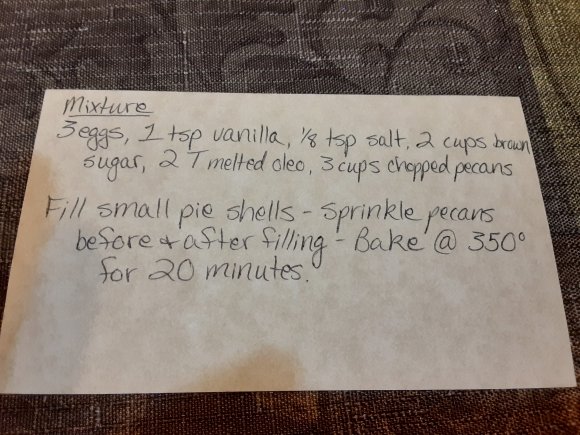 Mixture
3 eggs, 1 tsp vanilla, 1/8 tsp salt, 2 cups brown
sugar, 2 T melted oleo, 3 cups chopped pecans
Fill small pie shells - sprinkle pecans
before & after filling - Bake @ 350°
for 20 minutes.